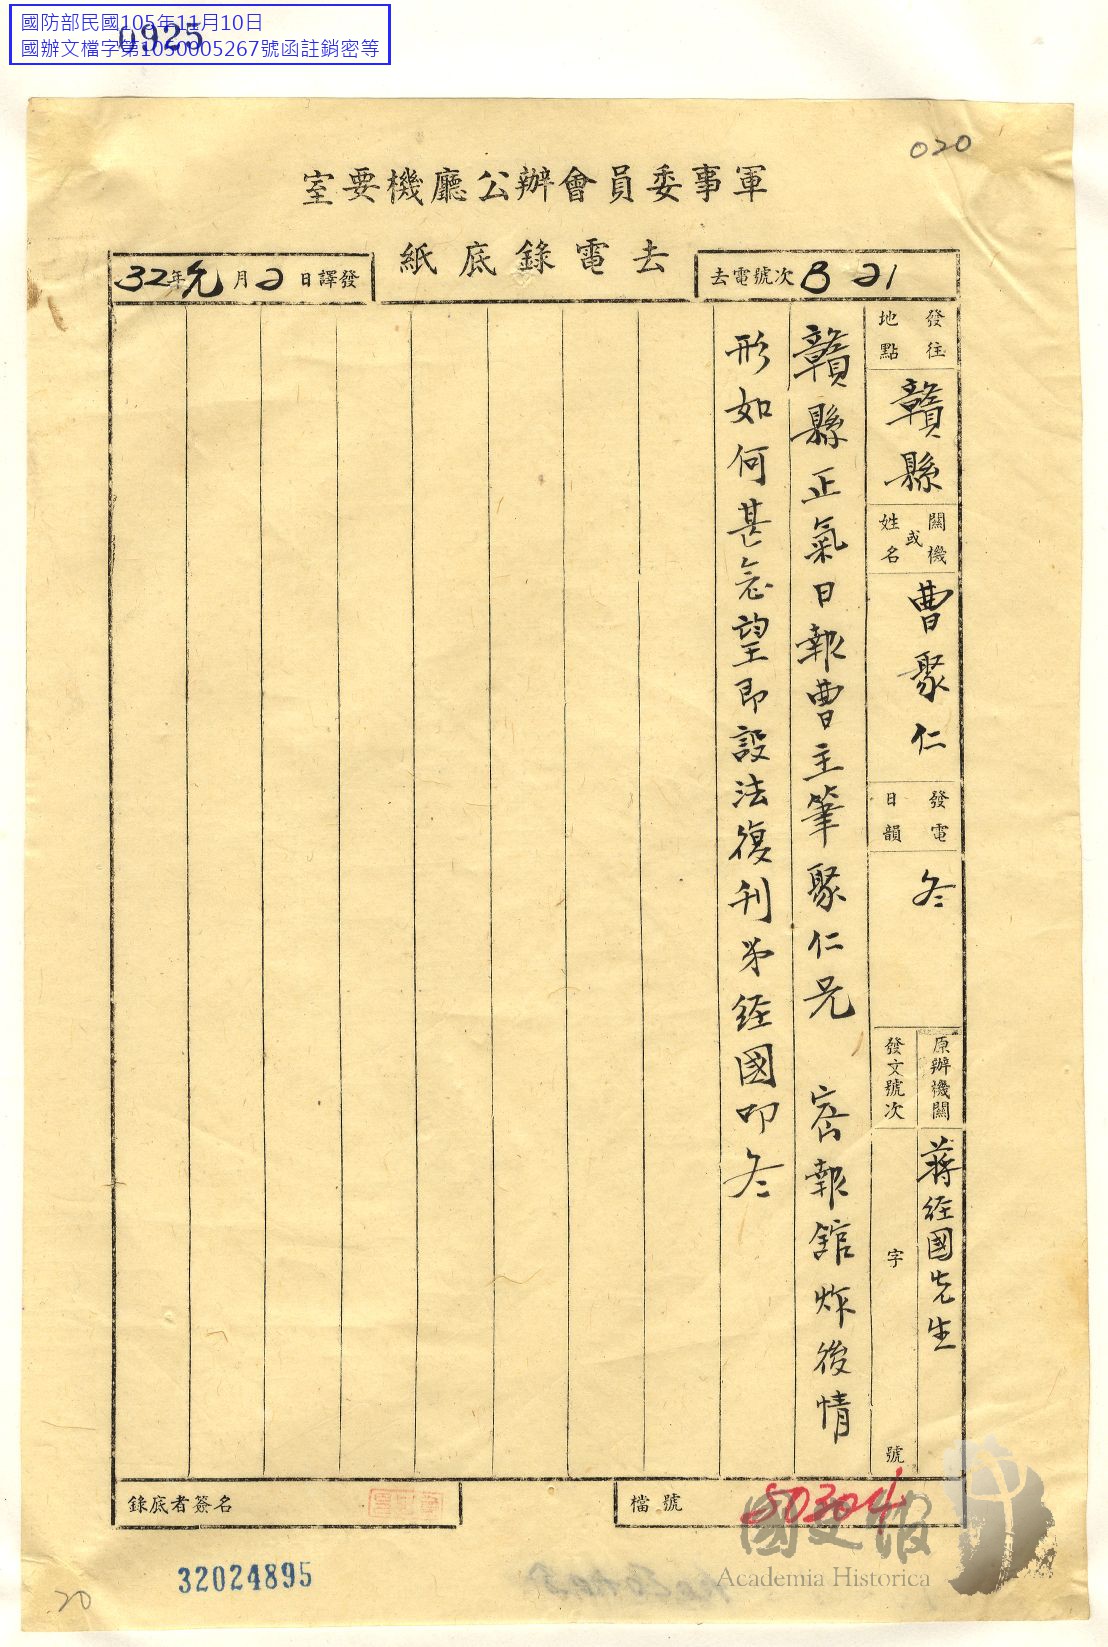 國防部民國105年11月10日
0925
國辦文檔字第1050005267號函註銷密等
020
軍事委員會辦公廳機要室
去電錄底紙
去電號次 B 21
32年元月2日譯發
發往地點
贛縣
機關或姓名
曹聚仁
發電日韻
冬
原辦機關
蔣經國先生
發文號次
字
號
贛縣正氣日報曹主筆聚仁兄 密報館炸後情
形如何甚念望即設法復刊弟經國叩冬
檔號
80304
錄底者簽名
32024895
20
國史館
Academia Historica